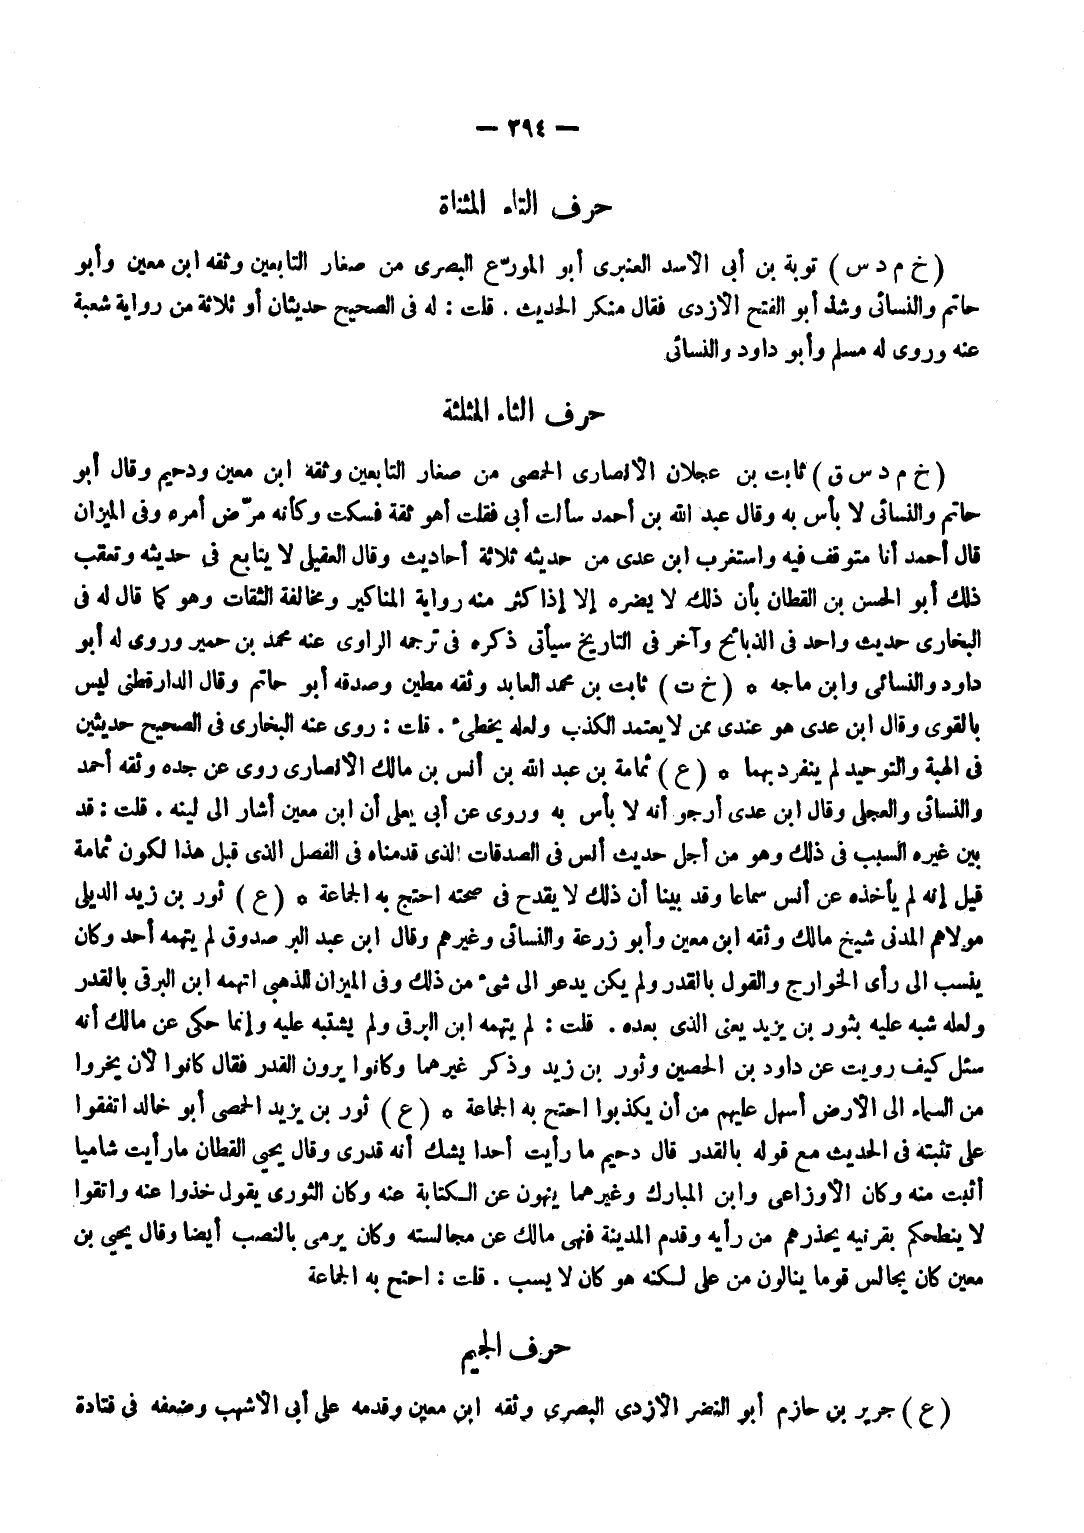 — ٣٩٤ —
حرف التاء المثناة
(خ م د س) توبة بن أبى الاسد العنبرى أبو المورّع البصرى من صغار التابعين وثقه ابن معين وأبو
حاتم والنسائى وشذ أبو الفتح الأزدى فقال منكر الحديث . قلت : له فى الصحيح حديثان أو ثلاثة من رواية شعبة
عنه وروى له مسلم وأبو داود والنسائى
حرف الثاء المثلثة
(خ م د س ق) ثابت بن عجلان الأنصارى الحمصى من صغار التابعين وثقة ابن معين ودحيم وقال أبو
حاتم والنسائى لا بأس به وقال عبد الله بن أحمد سألت أبى فقلت أهو ثقة فسكت وكأنه مرّض أمره وفى الميزان
قال أحمد أنا متوقف فيه واستغرب ابن عدى من حديثه ثلاثة أحاديث وقال العقيلى لا يتابع فى حديثه وتعقب
ذلك أبو الحسن بن القطان بأن ذلك لا يضره إلا إذا كثر منه رواية المناكير ومخالفة الثقات وهو كما قال له فى
البخارى حديث واحد فى الذبائح وآخر فى التاريخ سيأتى ذكره فى ترجمه الراوى عنه محمد بن حمير وروى له أبو
داود والنسائى وابن ماجه * (خ ت) ثابت بن محمد العابد وثقه مطين وصدقه أبو حاتم وقال الدارقطنى ليس
بالقوى وقال ابن عدى هو عندى ممن لا يعتمد الكذب ولعله يخطىء . قلت : روى عنه البخارى فى الصحيح حديثين
فى الهبة والتوحيد لم ينفرد بهما * (ع) ثمامة بن عبد الله بن أنس بن مالك الأنصارى روى عن جده وثقه أحمد
والنسائى والعجلى وقال ابن عدى أرجو أنه لا بأس به وروى عن أبى يعلى أن ابن معين أشار الى لينه . قلت : قد
بين غيره السبب فى ذلك وهو من أجل حديث أنس فى الصدقات الذى قدمناه فى الفصل الذى قبل هذا لكون ثمامة
قيل إنه لم يأخذه عن أنس سماعا وقد بينا أن ذلك لا يقدح فى صحته احتج به الجماعة * (ع) ثور بن زيد الديلى
مولاهم المدنى شيخ مالك وثقه ابن معين وأبو زرعة والنسائى وغيرهم وقال ابن عبد البر صدوق لم يتهمه أحد وكان
ينسب الى رأى الخوارج والقول بالقدر ولم يكن يدعو الى شىء من ذلك وفى الميزان للذهبى اتهمه ابن البرقى بالقدر
ولعله شبه عليه بثور بن يزيد يعنى الذى بعده . قلت : لم يتهمه ابن البرقى ولم يشتبه عليه وإنما حكى عن مالك أنه
سئل كيف رويت عن داود بن الحصين وثور بن زيد وذكر غيرهما وكانوا يرون القدر فقال كانوا لأن يخروا
من السماء الى الأرض أسهل عليهم من أن يكذبوا احتج به الجماعة * (ع) ثور بن يزيد الحمصى أبو خالد اتفقوا
على تثبته فى الحديث مع قوله بالقدر قال دحيم ما رأيت أحدا يشك أنه قدرى وقال يحيى القطان مارأيت شاميا
أثبت منه وكان الأوزاعى وابن المبارك وغيرهما ينهون عن الكتابة عنه وكان الثورى يقول خذوا عنه واتقوا
لا ينطحكم بقرنيه يحذرهم من رأيه وقدم المدينة فنهى مالك عن مجالسته وكان يرمى بالنصب أيضا وقال يحيى بن
معين كان يجالس قوما ينالون من على لكنه هو كان لا يسب . قلت : احتج به الجماعة
حرف الجيم
(ع) جرير بن حازم أبو النضر الأزدى البصرى وثقه ابن معين وقدمه على أبى الأشهب وضعفه فى قتادة